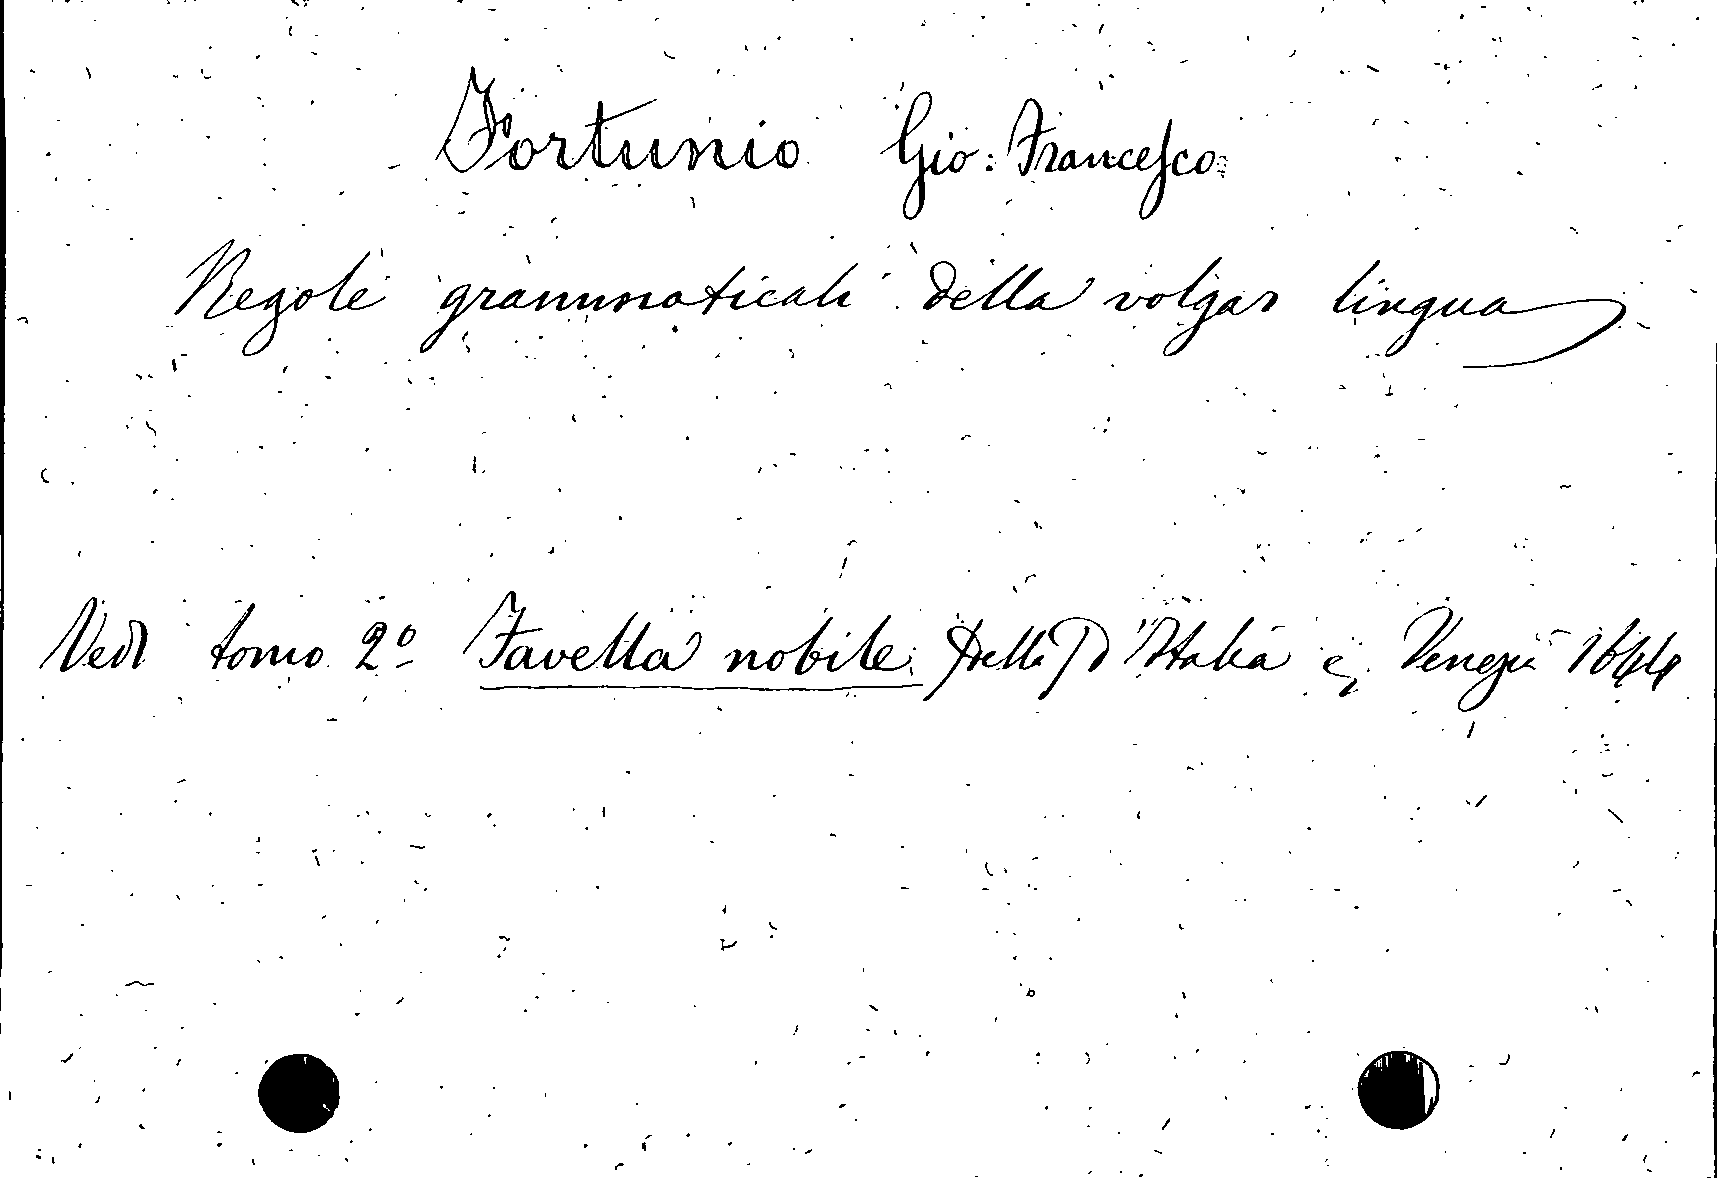 Fortunio Gio: Francesco
Regole grammaticali della volgar lingua
Vedi tomo 2º Favella nobile d'Italia Venezia 1644